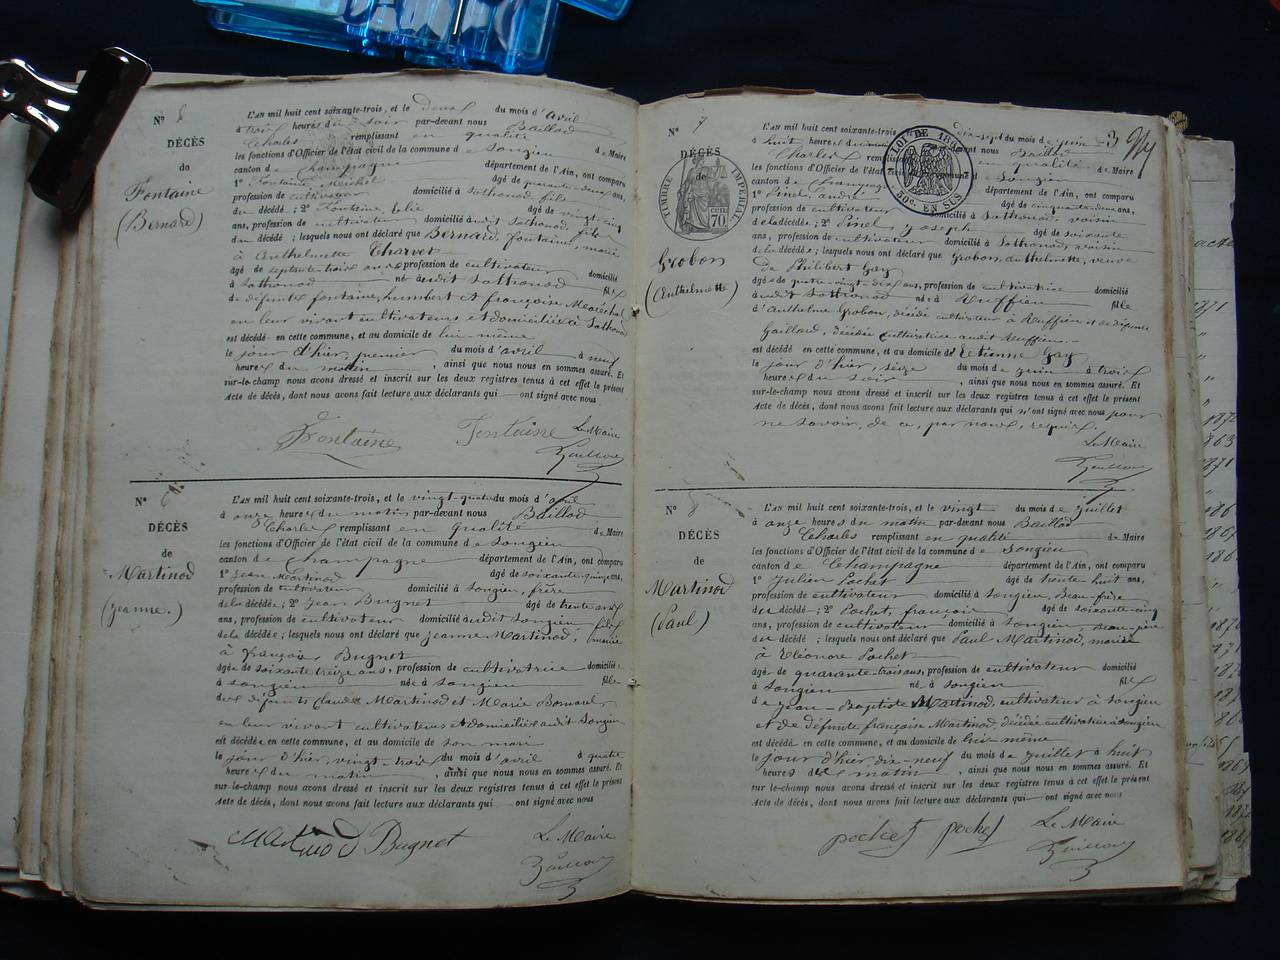 N° 5
DÉCÈS
de
Fontaine
(Bernard)
L'AN mil huit cent soixante-trois, et le deux du mois d'avril
à trois heures du soir par-devant nous Baillod
Charles remplissant en qualité de Maire
les fonctions d'Officier de l'état civil de la commune de Songieu
canton de Champagne département de l'Ain, ont comparu
1° Fontaine Michel âgé de quarante-deux ans,
profession de cultivateur domicilié à Sothonod, fils
du décédé; 2° Fontaine, félix âgé de vingt-cinq
ans, profession de cultivateur domicilié audit Sothonod, fils
du décédé; lesquels nous ont déclaré que Bernard, fontaine, marié
à Anthelmette Charvet
âgé de septante-trois ans, profession de cultivateur domicilié
à Sothonod né audit Sothonod fils
de défunts fontaine, humbert et françoise Maréchal
en leur vivant cultivateurs et domiciliés à Sothonod
est décédé en cette commune, et au domicile de lui-même
le jour d'hier, premier du mois d'avril à neuf
heures du matin, ainsi que nous nous en sommes assuré. Et
sur-le-champ nous avons dressé et inscrit sur les deux registres tenus à cet effet le présent
acte de décès, dont nous avons fait lecture aux déclarants qui ont signé avec nous
Fontaine Fontaine Le Maire
Baillod
N° 6
DÉCÈS
de
Martinod
(jeanne.)
L'AN mil huit cent soixante-trois, et le vingt-quatre du mois d'avril
à onze heures du matin par-devant nous Baillod
Charles remplissant en qualité de Maire
les fonctions d'Officier de l'état civil de la commune de Songieu
canton de Champagne département de l'Ain, ont comparu
1° Jean Martinod âgé de soixante-cinq ans,
profession de cultivateur domicilié à Songieu, frère
de la décédée; 2° Jean Bugnet âgé de trente ans
ans, profession de cultivateur domicilié audit Songieu fils
de la décédée; lesquels nous ont déclaré que jeanne Martinod, mariée
à françois, Bugnet
âgée de soixante treize ans, profession de cultivatrice domiciliée
à Songieu née à Songieu fille
des défunts Claude Martinod et Marie
en leur vivant cultivateurs et domiciliés audit Songieu
est décédée en cette commune, et au domicile de son mari
le jour d'hier, vingt-trois du mois d'avril à quatre
heures du matin, ainsi que nous nous en sommes assuré. Et
sur-le-champ nous avons dressé et inscrit sur les deux registres tenus à cet effet le présent
acte de décès, dont nous avons fait lecture aux déclarants qui ont signé avec nous
Martinod Bugnet Le Maire
Baillod
N° 7
DÉCÈS
de
TIMBRE IMPÉRIAL
70
Grobon
(Anthelmette)
LOI DE 18
50c. EN SUS
L'AN mil huit cent soixante-trois dix-sept du mois de juin
à huit heures du par-devant nous Baillod
Charles remplissant en qualité de Maire
les fonctions d'Officier de l'état civil de la commune de Songieu
canton de Champagne département de l'Ain, ont comparu
1° Pinel andré âgé de cinquante ans,
profession de cultivateur domicilié à Sothonod, voisin
de la décédée; 2° Pinel joseph âgé de soixante
ans, profession de cultivateur domicilié à Sothonod, voisin
de la décédée; lesquels nous ont déclaré que Grobon, anthelmette, veuve
de Philibert Gay
âgée de quatre-vingt-dix ans, profession de cultivatrice domicilié
audit Sothonod née à Ruffieu fille
d'Anthelme Grobon, décédé cultivateur à Ruffieu et de défunte
Gaillard, décédée cultivatrice audit Ruffieu.
est décédé en cette commune, et au domicile de Etienne Gay
le jour d'hier, seize du mois de juin à trois
heures du soir, ainsi que nous nous en sommes assuré. Et
sur-le-champ nous avons dressé et inscrit sur les deux registres tenus à cet effet le présent
acte de décès, dont nous avons fait lecture aux déclarants qui n'ont signé avec nous pour
ne savoir, de ce, par nous, requis.
Le Maire
Baillod
N° 8
DÉCÈS
de
Martinod
(Paul)
L'AN mil huit cent soixante-trois, et le vingt du mois de juillet
à onze heures du matin par-devant nous Baillod
Charles remplissant en qualité de Maire
les fonctions d'Officier de l'état civil de la commune de Songieu
canton de Champagne département de l'Ain, ont comparu
1° Julien Pochet âgé de trente-huit ans,
profession de cultivateur domicilié à Songieu, Beau-frère
du décédé; 2° Pochet, françois âgé de soixante-cinq
ans, profession de cultivateur domicilié à Songieu, beau-père
du décédé; lesquels nous ont déclaré que Paul Martinod, marié
à Eléonore Pochet
âgé de quarante-trois ans, profession de cultivateur domicilié
à Songieu né à Songieu fils
de Jean-Baptiste Martinod, cultivateur à Songieu
et de défunte françoise Martinod décédée cultivatrice à Songieu
est décédé en cette commune, et au domicile de lui-même
le jour d'hier, dix-neuf du mois de juillet à huit
heures du matin, ainsi que nous nous en sommes assuré. Et
sur-le-champ nous avons dressé et inscrit sur les deux registres tenus à cet effet le présent
acte de décès, dont nous avons fait lecture aux déclarants qui ont signé avec nous
pochet pochet Le Maire
Baillod